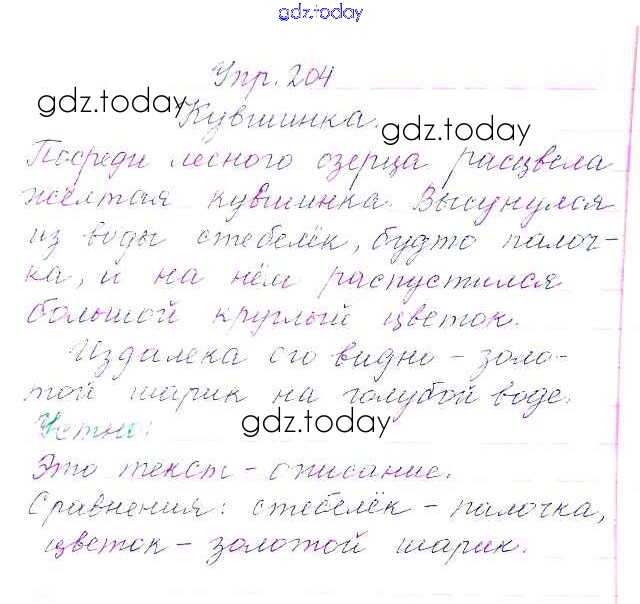 gdz.today
Упр. 204
gdz.today
Кувшинка.
gdz.today
Посреди лесного озерца расцвела
жёлтая кувшинка. Высунулся
из воды стебелёк, будто палоч-
ка, и на нём распустился
большой круглый цветок.
Издалека его видно - золо-
той шарик на голубой воде.
gdz.today
Устно:
Это текст - описание.
Сравнения: стебелёк - палочка,
цветок - золотой шарик.